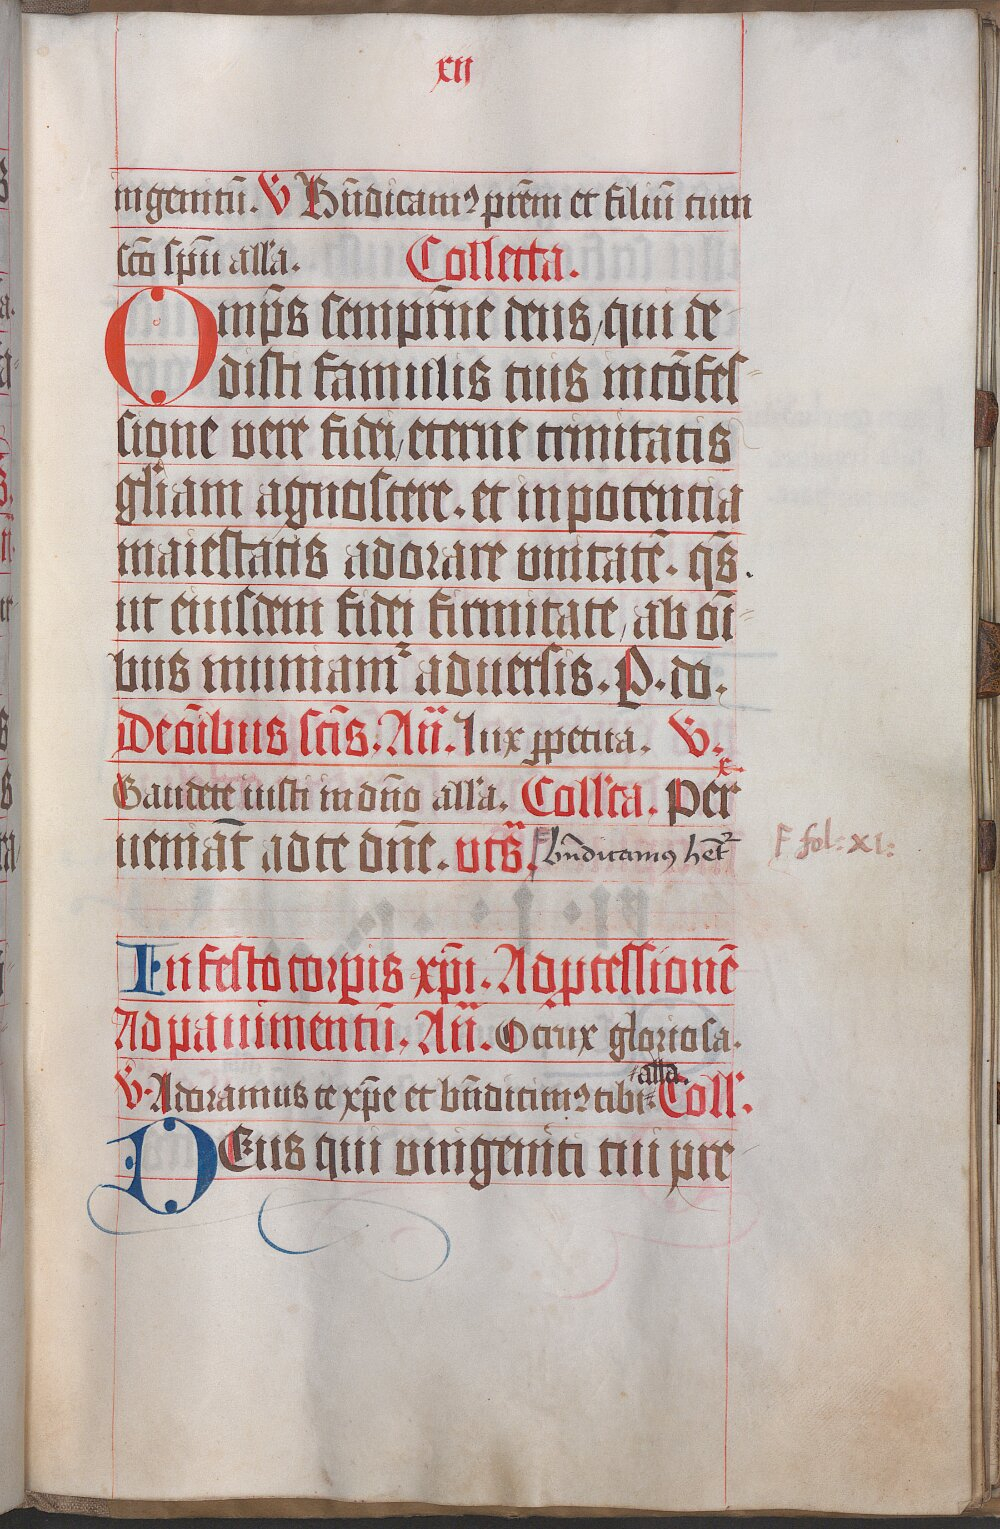 xii
ingenitū. V Bn̄dicam⁹ prēm et filiū cum
scō spū alla. Collecta.
Omp̄s sempit̄ne deus, qui de
disti famulis tuis in cōfes
sione vere fidei, eterne trinitatis
gl̄iam agnoscere. et in potentia
maiestatis adorare vnitatē. qs̄.
ut eiusdem fidei firmitate, ab oī
bus muniamʳ aduersis. P. do.
De oībus scīs. An̄. Lux ꝑpetua. V.
Gaudete iusti in dn̄o alla. Coll̄ta. Per
ueniāt ad te dn̄e. vts̄. Bn̄dicamus hēt
F fol: XI:
In festo corpis xp̄i. Ad pcessionē
Ad pauimentū. An̄. O crux gloriosa.
alla.
V. Adoramus te xp̄e et bn̄dicim⁹ tibi Coll.
DEus qui vnigeniti tui pre